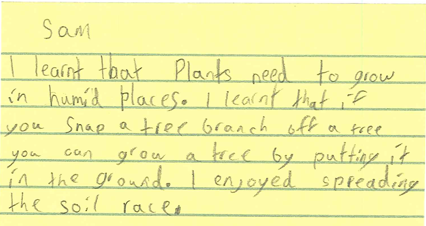 Sam
I learnt that Plants need to grow
in humid places. I learnt that if
you snap a tree branch off a tree
you can grow a tree by putting it
in the ground. I enjoyed spreading
the soil race.